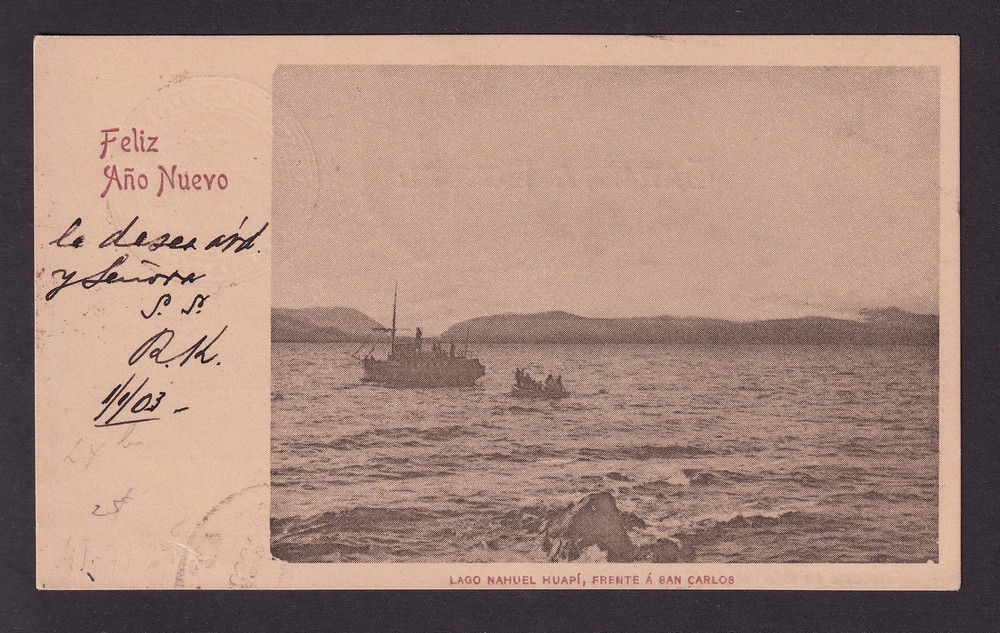 Feliz
Año Nuevo
le desea á Vd.
y Señora
S. S.
R. K.
1/1/03 -
25
LAGO NAHUEL HUAPÍ, FRENTE Á SAN CARLOS